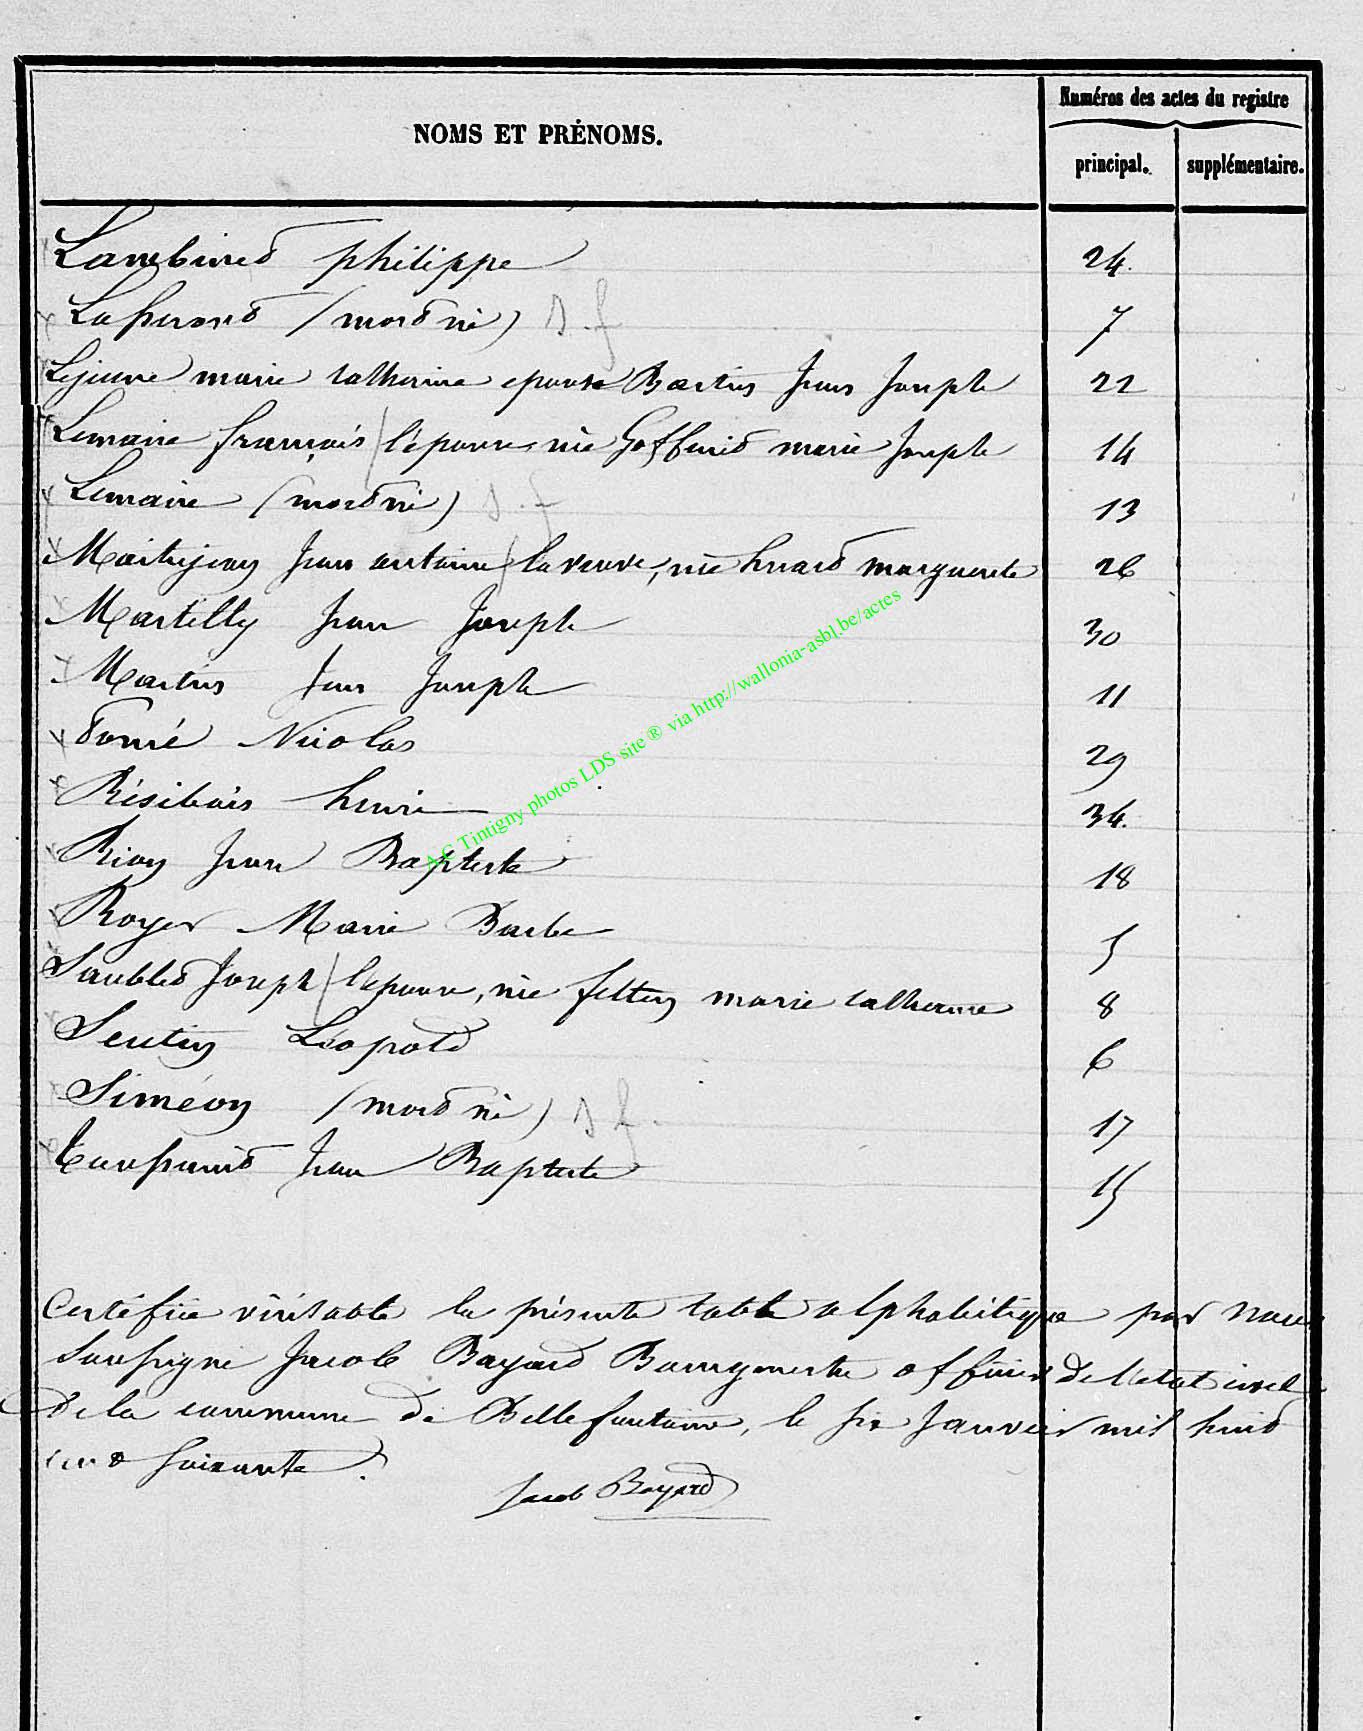 Numéros des actes du registre
NOMS ET PRÉNOMS.
principal. supplémentaire.
Lambinet philippe 24.
(mort né) s.f 7
Lejeune marie catherine epouse Martin Jean Joseph 22
Lemaire françois / l'épouse, née Goffinet marie Joseph 14
Lemaire (mort né) s.f 13
Maitrejean Jean antoine / la veuve, née huart marguerite 26
Martilly Jean Joseph 30
Martin Jean Joseph 11
Nicolas 29
Résibois henri 34.
Rion Jean Baptiste 18
Royer Marie Barbe 5
Joseph / l'epouse, née felten marie catherine 8
Sentin Léopold 6
Siméon (mort né) s f. 17
Jean Baptiste 15
A.C Tintigny photos LDS site ® via http://wallonia-asbl.be/actes
Certifiée véritable la présente table alphabétique par nous
soussigné Jacob Bayard Bourgmestre officier de l'etat civil
de la commune de Bellefontaine, le six Janvier mil huit
cent soixante.
Jacob Bayard